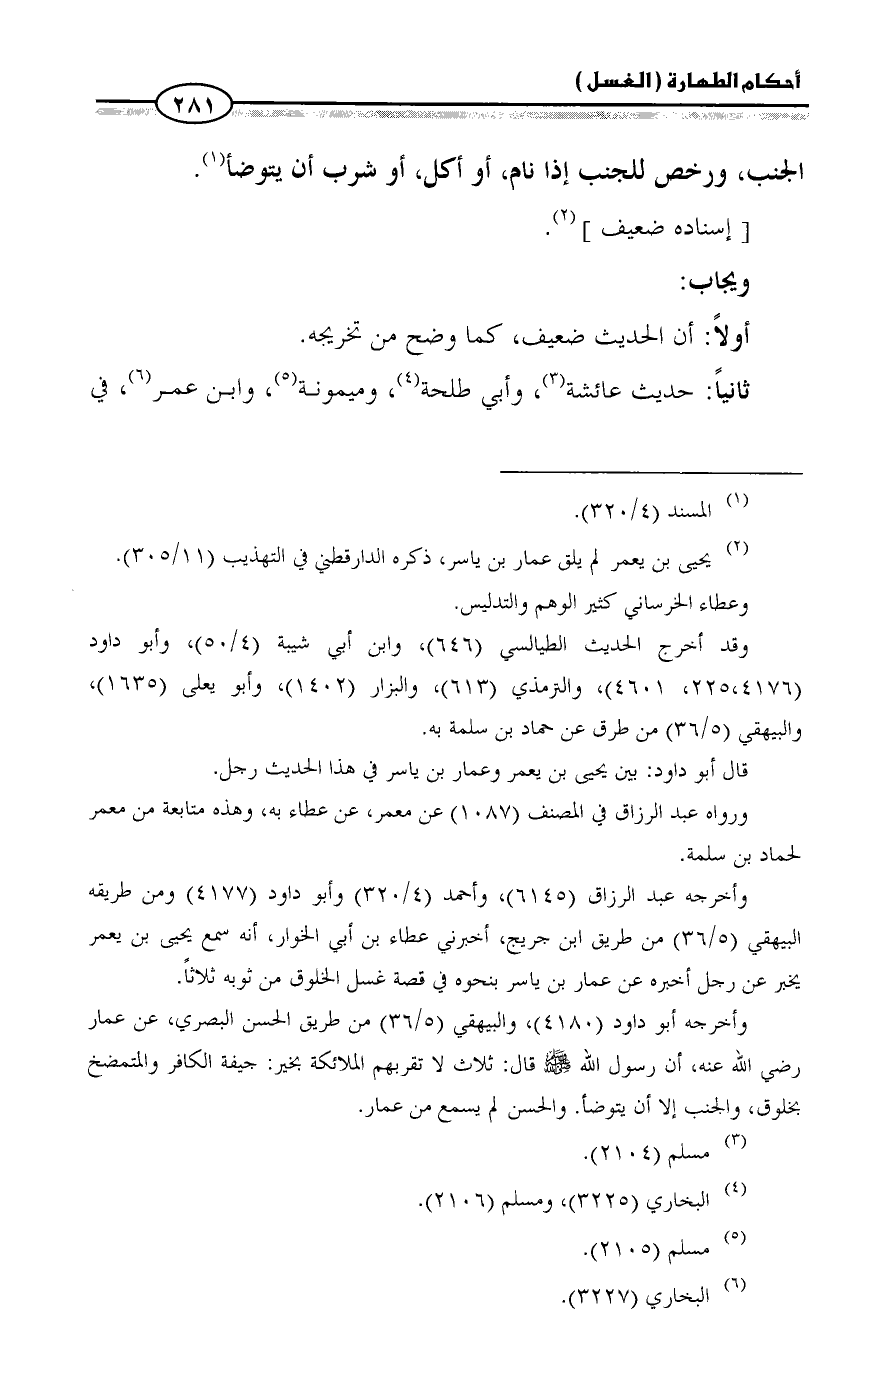 أحكام الطهارة (الغسل)
٢٨١
الجنب، ورخص للجنب إذا نام، أو أكل، أو شرب أن يتوضأ(١).
[ إسناده ضعيف ](٢).
ويجاب:
أولاً: أن الحديث ضعيف، كما وضح من تخريجه.
ثانياً: حديث عائشة(٣)، وأبي طلحة(٤)، وميمونـة(٥)، وابـن عمـر(٦)، في
(١) المسند (٣٢٠/٤).
(٢) يحيى بن يعمر لم يلق عمار بن ياسر، ذكره الدارقطني في التهذيب (٣٠٥/١١).
وعطاء الخرساني كثير الوهم والتدليس.
وقد أخرج الحديث الطيالسي (٦٤٦)، وابن أبي شيبة (٥٠/٤)، وأبو داود
(٢٢٥،٤١٧٦، ٤٦٠١)، والترمذي (٦١٣)، والبزار (١٤٠٢)، وأبو يعلى (١٦٣٥)،
والبيهقي (٣٦/٥) من طرق عن حماد بن سلمة به.
قال أبو داود: بين يحيى بن يعمر وعمار بن ياسر في هذا الحديث رجل.
ورواه عبد الرزاق في المصنف (١٠٨٧) عن معمر، عن عطاء به، وهذه متابعة من معمر
لحماد بن سلمة.
وأخرجه عبد الرزاق (٦١٤٥)، وأحمد (٣٢٠/٤) وأبو داود (٤١٧٧) ومن طريقه
البيهقي (٣٦/٥) من طريق ابن جريج، أخبرني عطاء بن أبي الخوار، أنه سمع يحيى بن يعمر
يخبر عن رجل أخبره عن عمار بن ياسر بنحوه في قصة غسل الخلوق من ثوبه ثلاثاً.
وأخرجه أبو داود (٤١٨٠)، والبيهقي (٣٦/٥) من طريق الحسن البصري، عن عمار
رضي الله عنه، أن رسول الله ﷺ قال: ثلاث لا تقربهم الملائكة بخير: جيفة الكافر والمتمضخ
بخلوق، والجنب إلا أن يتوضأ. والحسن لم يسمع من عمار.
(٣) مسلم (٢١٠٤).
(٤) البخاري (٣٢٢٥)، ومسلم (٢١٠٦).
(٥) مسلم (٢١٠٥).
(٦) البخاري (٣٢٢٧).